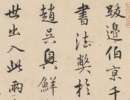 跋邊伯京千
書法弊於
趙吳興鮮
世出入此兩